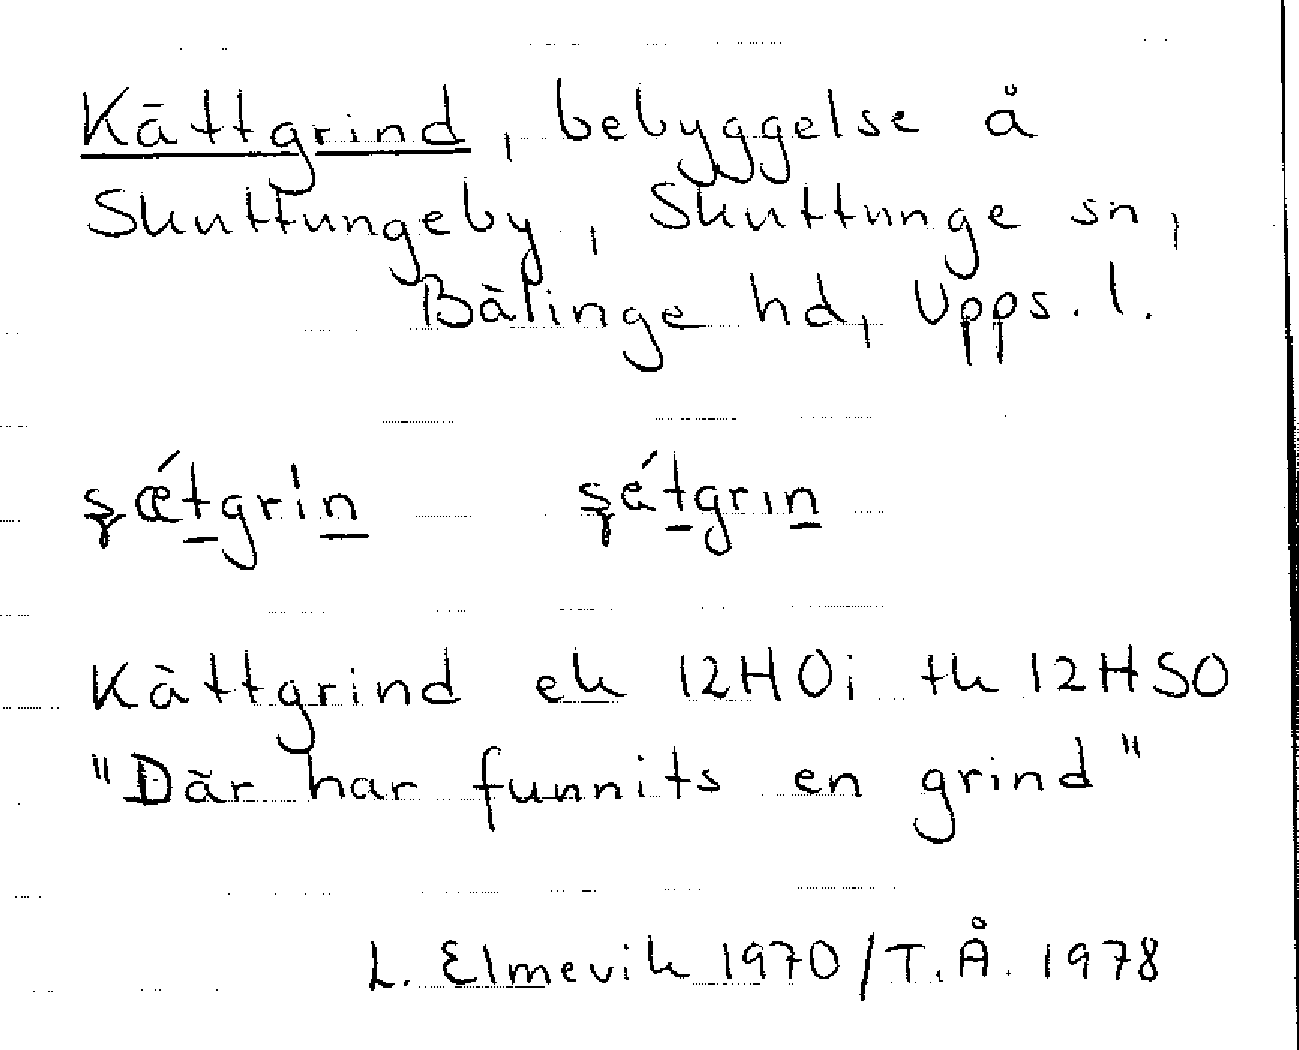 Kättgrind, bebyggelse å
Skuttungeby, Skuttunge sn,
Bälinge hd, Upps. l.
Kättgrind ek 12H0i tk 12HSO
"Där har funnits en grind"
L. Elmevik 1970/T.Å. 1978